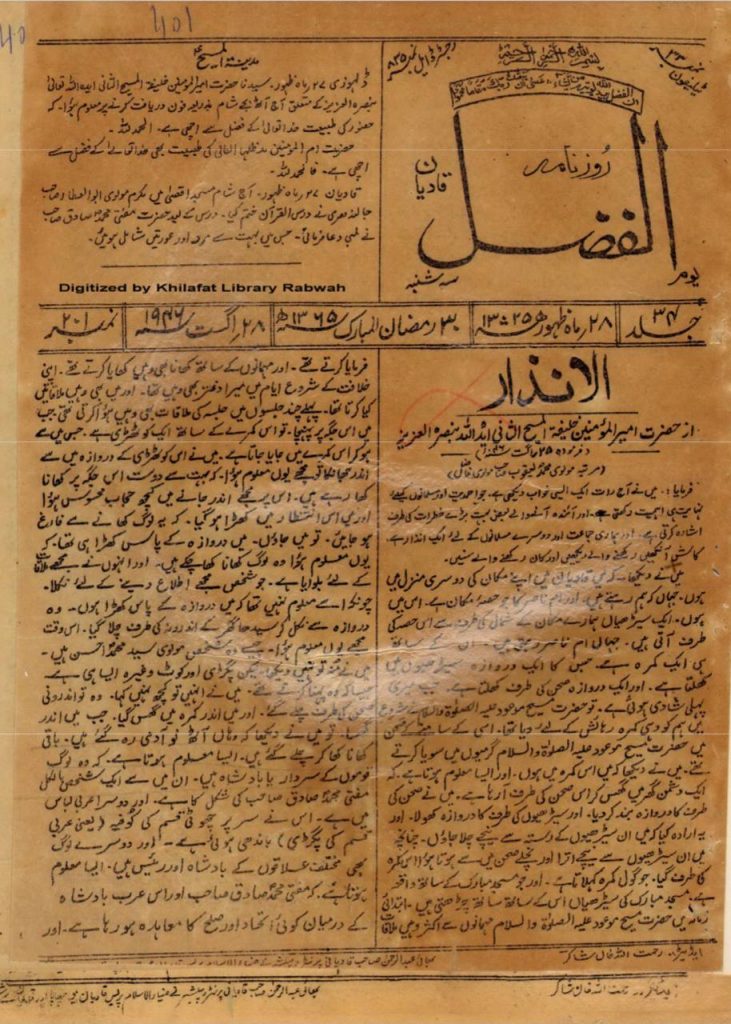 401
40
مدینۃ المسیح
ڈلہوزی ۲۷ ماہ ظہور۔ سیدنا حضرت امیر المومنین خلیفۃ المسیح الثانی ایدہ اللہ تعالیٰ
بنصرہ العزیز کے متعلق آج آٹھ بجے شام بذریعہ فون دریافت کرنے پر معلوم ہوا۔ کہ
حضور کی طبیعت خدا تعالیٰ کے فضل سے اچھی ہے۔ الحمد للہ۔
حضرت ام المومنین مدظلہا العالی کی طبیعت بھی خدا تعالیٰ کے فضل سے
اچھی ہے۔ فالحمد للہ۔
قادیان ۲۷ ماہ ظہور۔ آج شام مسجد اقصیٰ میں مکرم مولوی ابوالعطاء صاحب
جالندھری نے درس القرآن ختم کیا۔ درس کے بعد حضرت مفتی محمد صادق صاحب
نے لمبی دعا فرمائی۔ جس میں بہت سے مرد اور عورتیں شامل ہوئیں۔
Digitized by Khilafat Library Rabwah
رجسٹرڈ ایل نمبر ۸۳۵
بسم اللہ الرحمن الرحیم
ٹیلیفون نمبر ۲۳
روزنامہ
الفضل
قادیان
یوم
سہ شنبہ
جلد ۳۴ | ۲۸ ماہ ظہور ۱۳۲۵ھ | ۳۰ رمضان المبارک ۱۳۶۵ھ | ۲۸ اگست ۱۹۴۶ء | نمبر ۲۰۱
الانذار
از حضرت امیر المومنین خلیفۃ المسیح الثانی ایدہ اللہ بنصرہ العزیز
فرمودہ ۲۵ اگست ۱۹۴۶ء
(مرتبہ مولوی محمد یعقوب صاحب مولوی فاضل)
فرمایا: میں نے آج رات ایک ایسی خواب دیکھی ہے۔ جو احمدیت اور مسلمانوں کیلئے
نہایت ہی اہمیت رکھتی ہے۔ اور آئندہ آنے والے بعض بہت بڑے خطرات کی طرف
اشارہ کرتی ہے۔ اور ہماری جماعت اور دوسرے مسلمانوں کے لئے ایک انذار ہے۔
کاش آنکھیں رکھنے والے دیکھیں اور کان رکھنے والے سنیں۔
میں نے دیکھا۔ کہ میں قادیان میں اپنے مکان کی دوسری منزل میں
ہوں۔ جہاں کہ ہم رہتے ہیں۔ اور ام ناصر کا جو حصہ مکان ہے۔ اس میں
ہوں۔ ایک سیڑھیاں ہمارے مکان کے شمال کی طرف سے اس حصہ کی
طرف آتی ہیں۔ جہاں ام ناصر رہتی ہیں۔ ان کے ساتھ
ہی ایک کمرہ ہے۔ جس کا ایک دروازہ سیڑھیوں میں
کھلتا ہے۔ اور ایک دروازہ صحن کی طرف کھلتا ہے۔ جب میری
پہلی شادی ہوئی ہے۔ تو حضرت مسیح موعود علیہ الصلوٰۃ والسلام نے شروع
میں ہم کو وہی کمرہ رہائش کے لئے دیا تھا۔ اسی کے سامنے کے صحن
میں حضرت مسیح موعود علیہ الصلوٰۃ والسلام گرمیوں میں سویا کرتے
تھے۔ میں نے دیکھا کہ میں اس کمرہ میں ہوں۔ اور ایسا معلوم ہوتا ہے۔ کہ
ایک دشمن گھر میں گھس کر اس صحن کی طرف آرہا ہے۔ میں نے صحن کی
طرف کا دروازہ بند کر دیا۔ اور سیڑھیوں کی طرف کا دروازہ کھولا۔ اور
یہ ارادہ کیا کہ میں ان سیڑھیوں کے رستہ سے نیچے چلا جاؤں۔ چنانچہ
میں ان سیڑھیوں سے نیچے اترا اور نچلے صحن میں سے ہوتا ہوا اس کمرہ
کی طرف گیا۔ جو گول کمرہ کہلاتا ہے۔ اور جو مسجد مبارک کے ساتھ واقعہ
ہے۔ مسجد مبارک کی سیڑھیاں اس کے ساتھ ساتھ چڑھتی ہیں۔ ابتدائی
زمانہ میں حضرت مسیح موعود علیہ الصلوٰۃ والسلام مہمانوں سے اکثر وہیں ملاقات
فرمایا کرتے تھے۔ اور مہمانوں کے ساتھ کھانا بھی وہیں کھایا کرتے تھے۔ اپنی
خلافت کے شروع ایام میں میرا دفتر بھی وہیں تھا۔ اور میں بھی وہیں ملاقاتیں
کیا کرتا تھا۔ پہلے چند جلسوں میں جلسہ کی ملاقات بھی وہیں ہوا کرتی تھی۔ جب
میں اس جگہ پر پہنچا۔ تو اس کمرے کے ساتھ ایک کوٹھڑی ہے۔ جس میں سے
ہو کر اس کمرے میں جایا جاتا ہے۔ میں نے اس کوٹھڑی کے دروازہ میں سے
اندر جھانکا تو مجھے یوں معلوم ہوا۔ کہ بہت سے دوست اس جگہ پر کھانا
کھا رہے ہیں۔ اس پر مجھے اندر جانے میں کچھ حجاب محسوس ہوا
اور میں اس انتظار میں کھڑا ہو گیا۔ کہ یہ لوگ کھانے سے فارغ
ہو جائیں۔ تو میں جاؤں۔ میں دروازہ کے پاس کھڑا ہی تھا۔ کہ
یوں معلوم ہوا وہ لوگ کھانا کھا چکے ہیں۔ اور انہوں نے مجھے ملاقات
کے لئے بلوایا ہے۔ جو شخص مجھے اطلاع دینے کے لئے نکلا۔
چونکہ اسے معلوم نہیں تھا کہ میں دروازہ کے پاس کھڑا ہوں۔ وہ
دروازہ سے نکل کر سیدھا گھر کے اندرونہ کی طرف چلا گیا۔ اس وقت
مجھے یوں معلوم ہوا۔ جیسے وہ شخص مولوی سید محمد احسن ہیں۔
میں نے منہ تو نہیں دیکھا۔ لیکن پگڑی اور کوٹ وغیرہ ایسا ہی ہے
جیسا کہ وہ پہنا کرتے تھے۔ میں نے انہیں تو کچھ نہیں کہا۔ وہ تو اندرونی
صحن کی طرف چلے گئے۔ اور میں اندر کمرہ میں گھس گیا۔ جب میں اندر
گھسا۔ تو میں نے دیکھا کہ وہاں آٹھ نو آدمی رہ گئے ہیں۔ باقی
کھانا کھا کر چلے گئے ہیں۔ ایسا معلوم ہوتا ہے۔ کہ وہ لوگ
قوموں کے سردار یا بادشاہ ہیں۔ ان میں سے ایک شخص بالکل
مفتی محمد صادق صاحب کی شکل کا ہے۔ اور دوسرا عربی لباس
میں ہے۔ اس نے سر پر چھوٹی قسم کی کوفیہ (یعنی عربی
قسم کی پگڑی) باندھی ہوئی ہے۔ اور دوسرے لوگ
بھی مختلف علاقوں کے بادشاہ اور رئیس ہیں۔ ایسا معلوم
ہوتا ہے۔ کہ مفتی محمد صادق صاحب اور اس عرب بادشاہ
کے درمیان کوئی اتحاد اور صلح کا معاہدہ ہو رہا ہے۔ اور
ایڈیٹر۔ رحمت اللہ خاں شاکر
بھائی عبدالرحمن صاحب قادیانی پرنٹر و پبلشر نے ضیاء الاسلام
ایڈیٹر۔ رحمت اللہ خاں شاکر
بھائی عبدالرحمن صاحب قادیانی پرنٹر و پبلشر نے ضیاء الاسلام پریس قادیان میں چھاپا اور